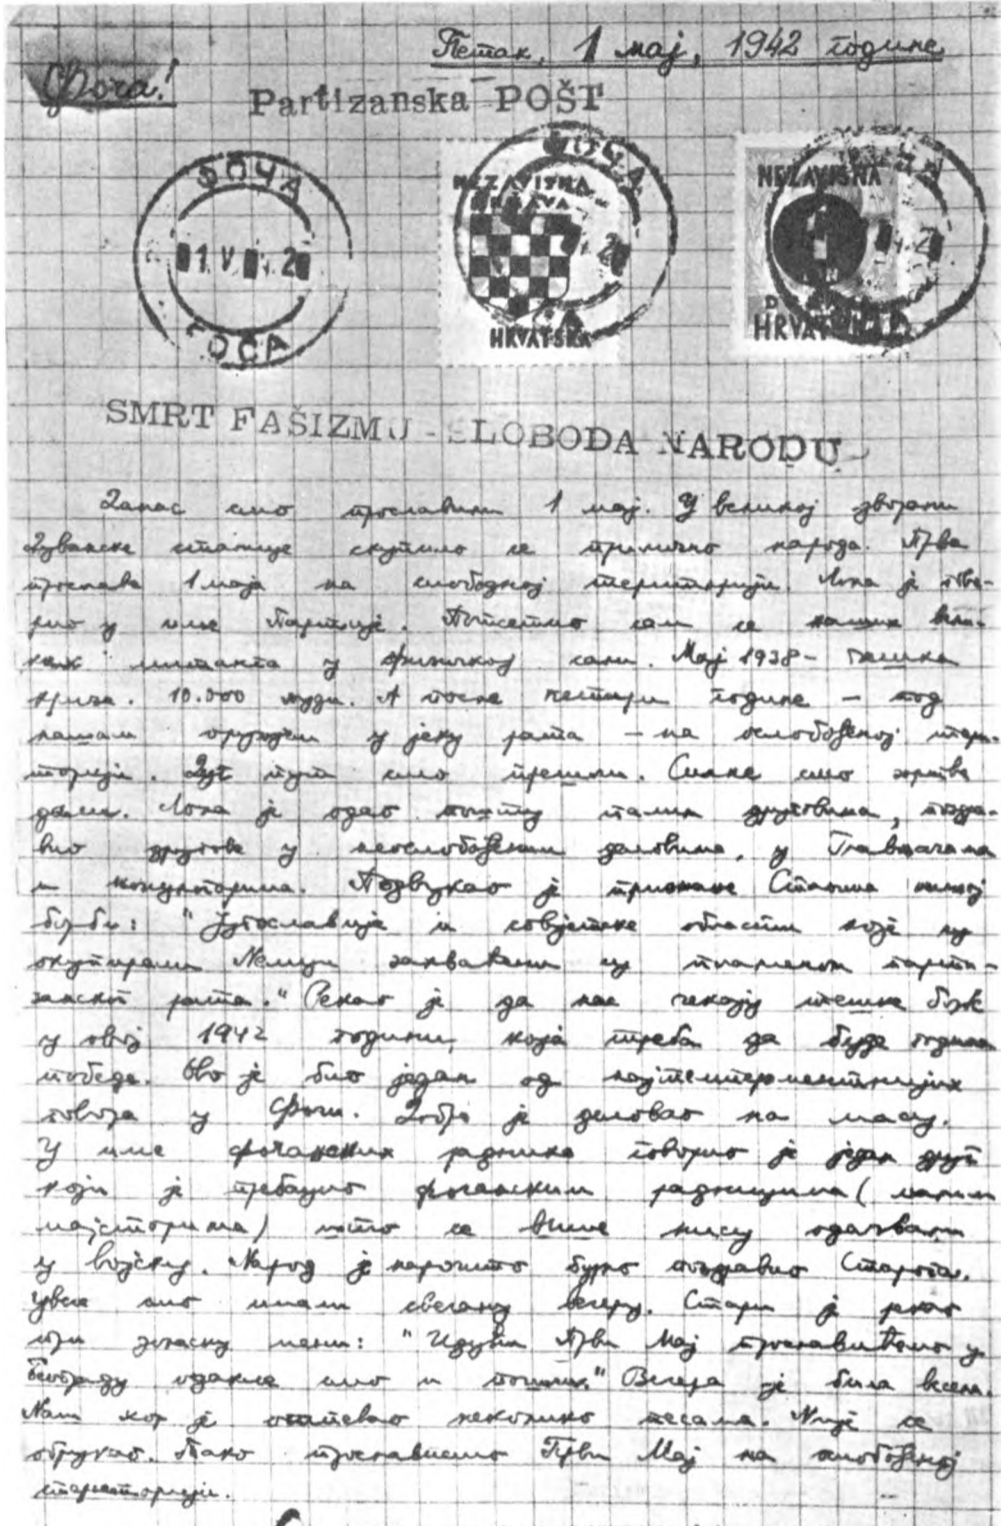 Петак, 1 мај, 1942 године
Фоча!
Partizanska POŠT
ФОЧА
1 V 42
FOČA
NEZAVISNA
DRŽAVA
HRVATSKA
ФОЧА
NEZAVISNA
HRVATSKA
SMRT FAŠIZMU - SLOBODA NARODU -
Данас смо прославили 1 мај. У великој дворани
Дуванске станице скупило се прилично народа. Прва
прослава 1 маја на слободној територији. Лола је отво-
рио у име Партије. Потсетио сам се наших вели-
ких митинга у физичкој сали. Мај 1938 – тешка
криза. 10.000 људи. А после четири године – под
нашим оружјем у јеку рата – на ослобођеној тери-
торији. Дуг пут смо прешли. Силне смо жртве
дали. Лола је одао пошту палим друговима, поздра-
вио другове у неослобођеним деловима, у
и концлогорима. Подвукао је признање Стаљина нашој
борби: "Југославија и совјетске области које су
окупирали Немци захваћени су пламеном парти-
занског рата." Рекао је да нас чекају тешке борбе
у овој 1942 години, која треба да буде година
победе. Ово је био један од најтемпераментнијих
говора у Фочи. Добро је деловао на масу.
У име фочанских радника говорио је један друг
који је пребацио фочанским радницима (малим
мајсторима) што се више нису одазвали
у војску. Народ је нарочито бурно поздравио Старога.
Увече смо имали свечану вечеру. Стари је рекао
при уласку мени: "Идући Први Мај прославићемо у
Београду одакле смо и пошли." Вечера је била весела.
Наш хор је отпевао неколико песама. Није се
обрукао. Тако прослависмо Први Мај на слобођеној
територији.